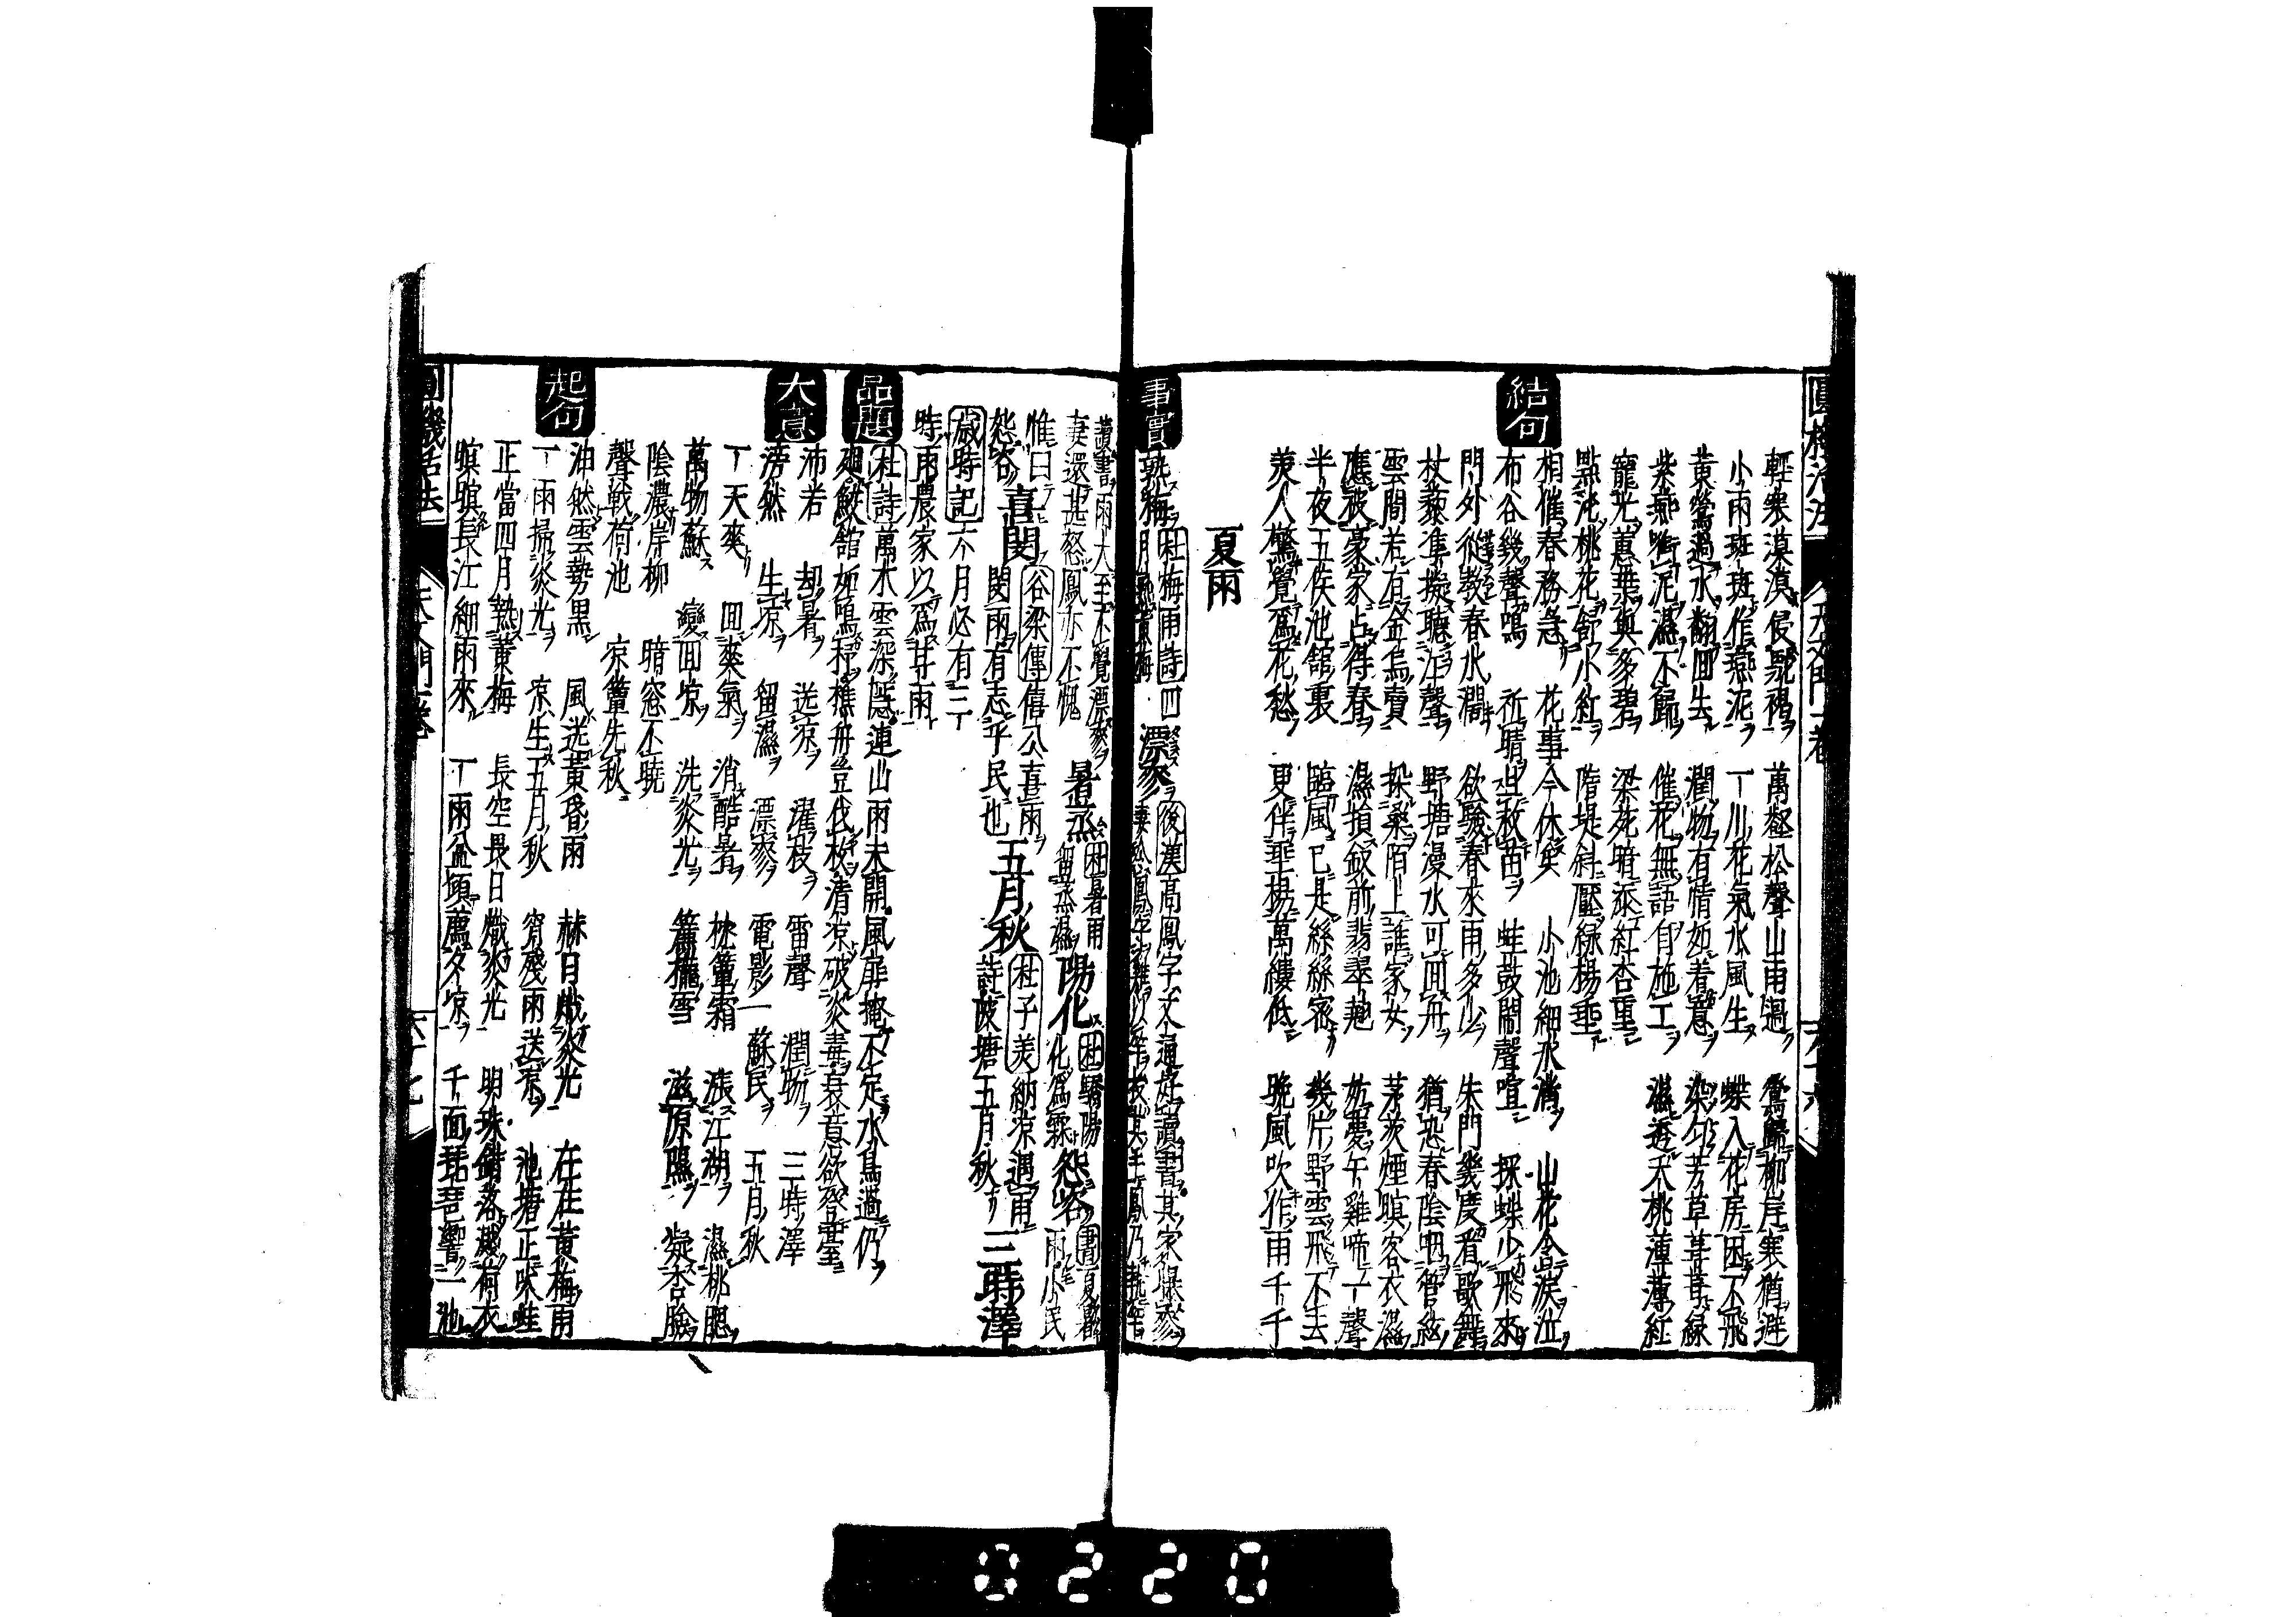 圓機活法 天文門一卷 六十六
輕寒漠漠侵鴛褐 萬壑松聲山雨過 鴦歸柳岸寒猶避
小雨斑斑作燕泥 一川花氣水風生 蝶入花房困不飛
黃鶯過水翻回去 潤物有情如着意 染勻芳草萋萋綠
紫燕啣泥濕不歸 催花無語自施工 濕透夭桃薄薄紅
寵光蕙葉與多碧 梁苑暗添紅杏重
點沱桃花舒小紅 隋堤斜壓綠楊垂
結句
相催春務急 花事今休矣 小池細水滴 山花含淚泣
布谷幾聲鳴 祈晴且救苗 蛙鼓鬧聲喧 探蝶少飛來
門外從教春水潤 欲驗春來雨多少 朱門幾度看歌舞
杖藜準擬聽江聲 野塘漫水可回舟 猶恐春陰咽管絃
雲間若有金烏賣 採桑陌上誰家女 茅茨煙瞑客衣濕
應被豪家占得春 濕損釵前翡翠翹 午夢午雞啼一聲
半夜五侯池館裏 臨風已是絲絲密 幾片野雲飛不去
美人驚覺爲花愁 更伴垂楊萬縷低 晚風吹作雨千千
夏雨
事實
熟梅 杜梅雨詩四月熟黃梅 漂麥 後漢高鳳字文通好讀書其家曝麥
妻還甚怒鳳亦不愧 暑蒸 杜暑雨 陽化 杜驕陽化爲霖 怨咨 書夏暑雨小民
惟曰怨咨 喜閔 谷梁傳僖公喜雨閔雨有志乎民也 五月秋 杜子美納凉遇雨詩陂塘五月秋 三時澤
歲時記六月必有三時雨農家以爲甘雨
品題
杜詩萬木雲深隱連山雨未開風扉掩不定水鳥過仍
廻鮫館如鳴杼樵舟豈伐枚清凉破炎毒衰意欲登臺
大意
沛若 却暑 送凉 濯枝 雷聲 潤物 三時澤
滂然 生凉 留濕 漂麥 電影 蘇民 五月秋
一天爽 回爽氣 消酷暑 枕簟霜 漲江湖 濕桃腮
萬物蘇 變回凉 洗炎光 簾櫳雪 滋原隰 凝杏臉
陰濃岸柳 暗窓不曉
聲戰荷池 凉簟先秋
起句
油然雲勢黑 風送黃昏雨 赫日熾炎光 在在黃梅雨
一雨掃炎光 凉生五月秋 宵殘雨送凉 池塘正吠蛙
正當四月熟黃梅 長空畏日熾炎光 明珠錯落濺荷衣
暝暝長江細雨來 一雨盆傾萬夕凉 千面琵琶響一池
圓機活法 天文門一卷 六十七
0220